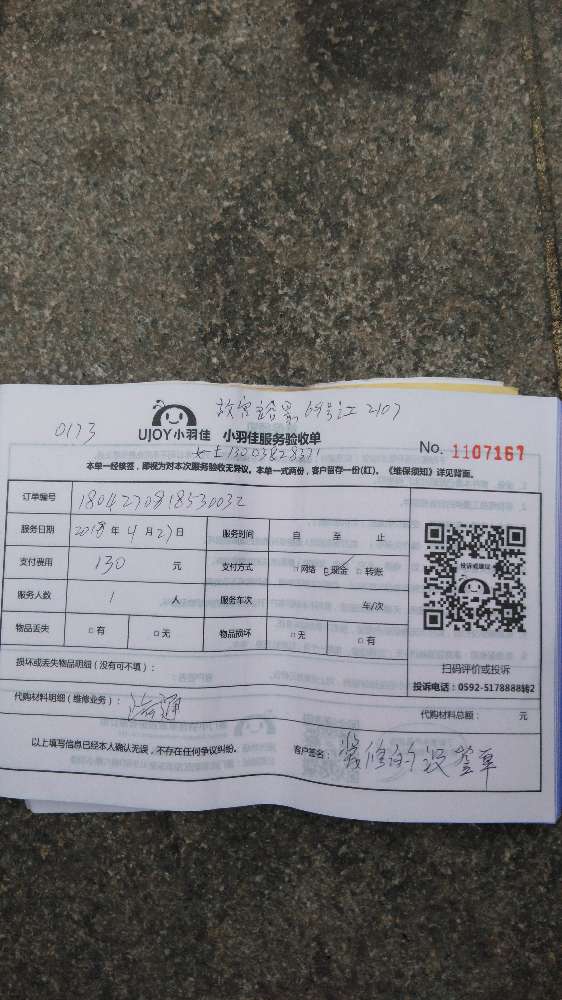 0173
UJOY小羽佳 小羽佳服务验收单
No. 1107167
13003828371
本单一经核签，即视为对本次服务验收无异议。本单一式两份，客户留存一份(红)。《维保须知》详见背面。
订单编号 1804270818530032
服务日期 2018年 4月 27日 服务时间 自 至 止
支付费用 130 元 支付方式 □网络 □现金 □转账
服务人数 1 人 服务车次 车/次
物品丢失 □有 □无 物品损坏 □无 □有
投诉或建议
扫码评价或投诉
投诉电话：0592-5178888转2
损坏或丢失物品明细（没有可不填）：
代购材料明细（维修业务）： 代购材料总额： 元
以上填写信息已经本人确认无误，不存在任何争议纠纷。 客户签名： 装修的没签单